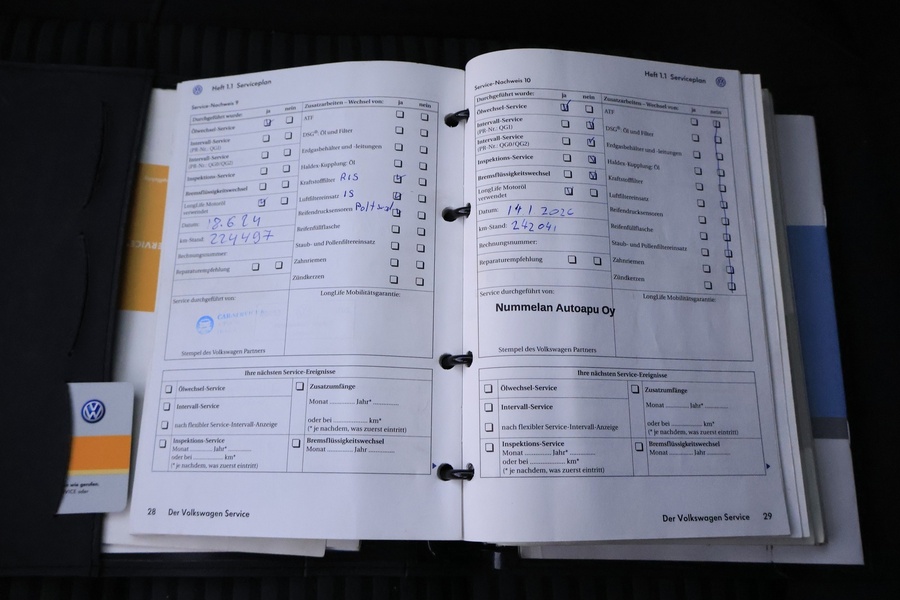 Heft 1.1 Serviceplan
Service-Nachweis 9
Durchgeführt wurde: ja nein
Ölwechsel-Service
Intervall-Service
(PR-Nr.: QG1)
Intervall-Service
(PR-Nr.: QG0/QG2)
Inspektions-Service
Bremsflüssigkeitswechsel
LongLife Motoröl
verwendet
Datum: 18.6 24
km-Stand: 224497
Rechnungsnummer:
Reparaturempfehlung
Zusatzarbeiten - Wechsel von: ja nein
ATF
DSG®: Öl und Filter
Erdgasbehälter und -leitungen
Haldex-Kupplung: Öl
Kraftstofffilter RIS
Luftfiltereinsatz IS
Reifendrucksensoren
Reifenfüllflasche
Staub- und Pollenfiltereinsatz
Zahnriemen
Zündkerzen
Service durchgeführt von:
LongLife Mobilitätsgarantie:
Stempel des Volkswagen Partners
Ihre nächsten Service-Ereignisse
Ölwechsel-Service
Intervall-Service
nach flexibler Service-Intervall-Anzeige
Inspektions-Service
Monat Jahr*
oder bei km*
(* je nachdem, was zuerst eintritt)
Zusatzumfänge
Monat Jahr*
oder bei km*
(* je nachdem, was zuerst eintritt)
Bremsflüssigkeitswechsel
Monat Jahr
28 Der Volkswagen Service
Heft 1.1 Serviceplan
Service-Nachweis 10
Durchgeführt wurde: ja nein
Ölwechsel-Service
Intervall-Service
(PR-Nr.: QG1)
Intervall-Service
(PR-Nr.: QG0/QG2)
Inspektions-Service
Bremsflüssigkeitswechsel
LongLife Motoröl
verwendet
Datum: 14 1 2026
km-Stand: 242041
Rechnungsnummer:
Reparaturempfehlung
Zusatzarbeiten - Wechsel von: ja nein
ATF
DSG®: Öl und Filter
Erdgasbehälter und -leitungen
Haldex-Kupplung: Öl
Kraftstofffilter
Luftfiltereinsatz
Reifendrucksensoren
Reifenfüllflasche
Staub- und Pollenfiltereinsatz
Zahnriemen
Zündkerzen
Service durchgeführt von:
Nummelan Autoapu Oy
LongLife Mobilitätsgarantie:
Stempel des Volkswagen Partners
Ihre nächsten Service-Ereignisse
Ölwechsel-Service
Intervall-Service
nach flexibler Service-Intervall-Anzeige
Inspektions-Service
Monat Jahr*
oder bei km*
(* je nachdem, was zuerst eintritt)
Zusatzumfänge
Monat Jahr*
oder bei km*
(* je nachdem, was zuerst eintritt)
Bremsflüssigkeitswechsel
Monat Jahr
Der Volkswagen Service 29